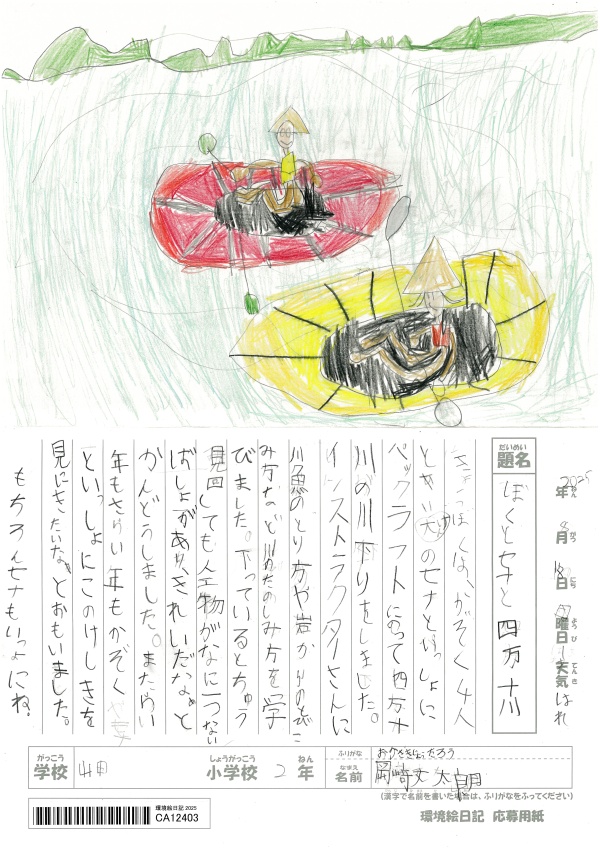 2025年ねん 8月がつ 18日にち 曜日ようび 天気てんき はれ
だいめい
題名
ぼくとセナと四万十川
きょうぼくは、かぞく4人
とあい犬のセナといっしょに
パックラフトにのって四万十
川の川下りをしました。
インストラクターさんに
川魚のとり方や岩からのとびこ
み方など川のたのしみ方を学
びました。下っているとちゅう
見回しても人工物がなに一つない
ばしょがあり、きれいだなぁと
かんどうしました。またらい
年もさらい年もかぞく
といっしょにこのけしきを
見にきたいなぁとおもいました。
もちろんセナもいっしょにね。
がっこう
学校
しょうがっこう
小学校
2
ねん
年
ふりがな
なまえ
名前
おかざきじょうたろう
岡崎丈太朗
(漢字で名前を書いた場合は、ふりがなをふってください)
環境絵日記2025
CA12403
環境絵日記 応募用紙